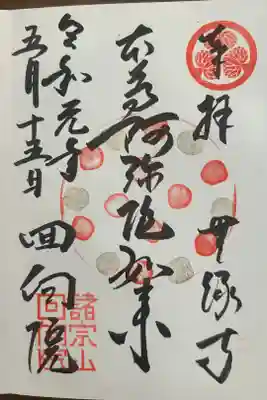 奉拝 無縁寺
本尊阿弥陀如来
令和元年
五月十五日 回向院
諸宗山
回向院